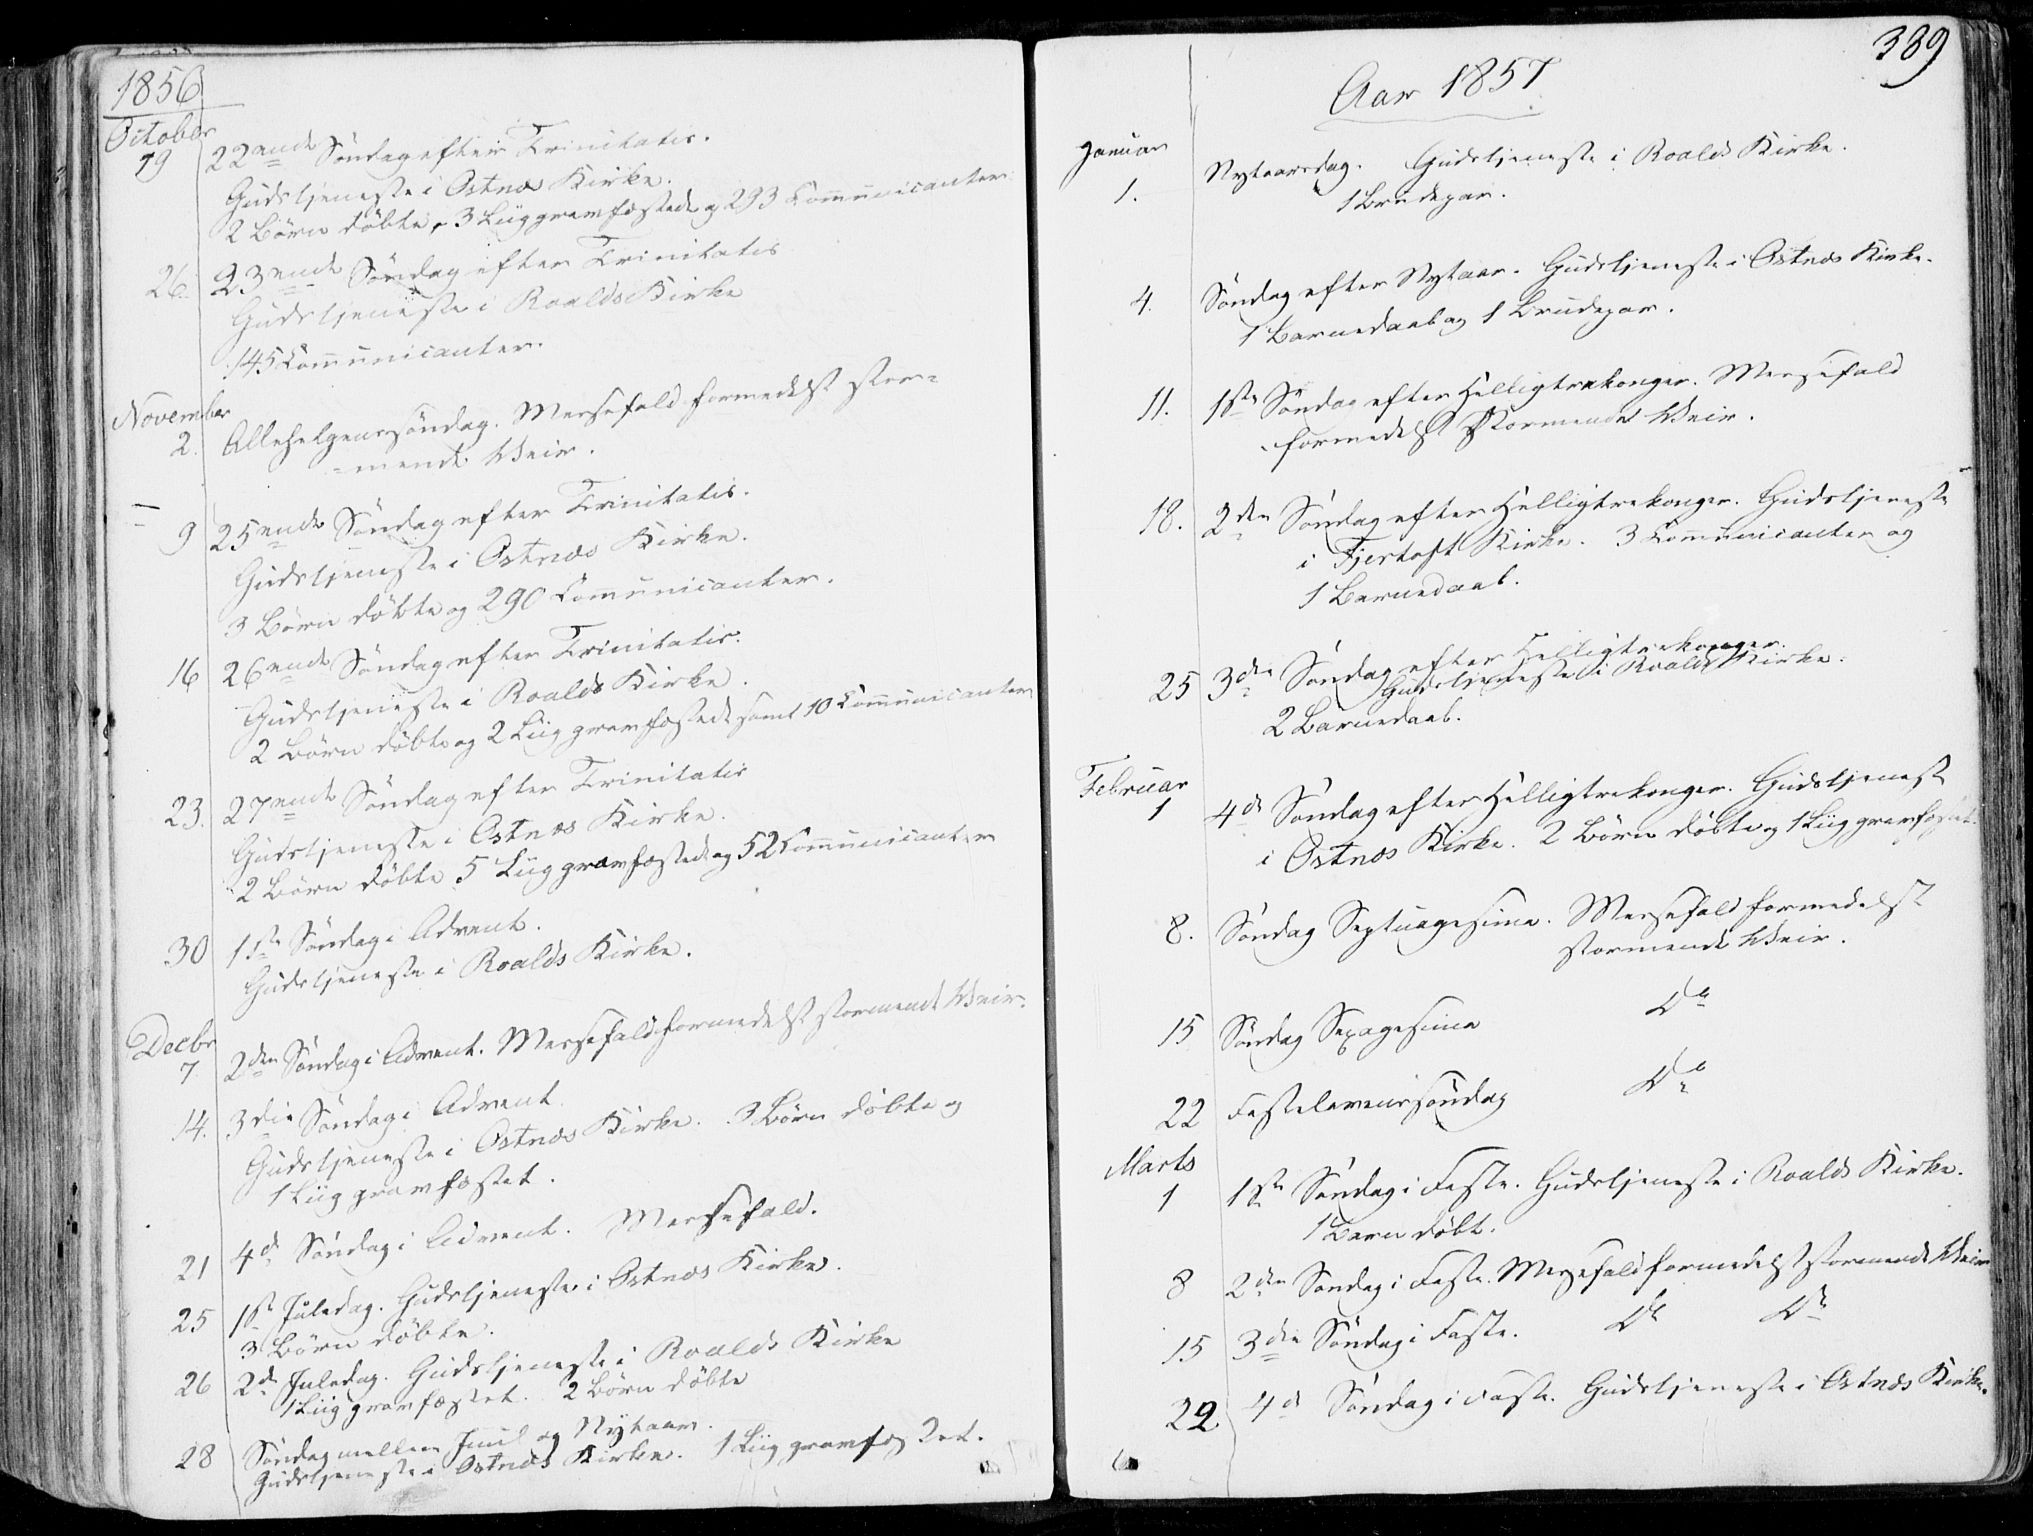 1856
October
19 22ende Söndag efter Trinitatis.
Gudstjeneste i Østnæs Kirke.
2 Börn döbte, 3 Liig gravfæstede og 293 Communicanter.
26. 23ende Söndag efter Trinitatis
Gudstjeneste i Roalds Kirke
145 Communicanter.
November
2. Allehelgenssöndag. Messefald formedelst stor-
mende Veir.
9 25ende Söndag efter Trinitatis.
Gudstjeneste i Østnæs Kirke.
3 Börn döbte og 290 Communicanter.
16 26ende Söndag efter Trinitatis.
Gudstjeneste i Roalds Kirke.
2 Börn döbte og 2 Liig gravfæstede samt 10 Communicanter
23. 27ende Söndag efter Trinitatis
Gudstjeneste i Østnæs Kirke.
2 Börn döbte 5 Liig gravfæstede og 52 Communicanter
30 1ste Söndag i Advent.
Gudstjeneste i Roalds Kirke.
Decbr
7. 2den Söndag i Advent. Messefald formedelst stormende Veir.
14. 3die Söndag i Advent.
Gudstjeneste i Østnæs Kirke. 3 Börn döbte og
1 Liig gravfæstet.
21 4de Söndag i Advent. Messefald.
25 1ste Juledag. Gudstjeneste i Østnæs Kirke.
3 Börn döbte.
26 2d Juledag. Gudstjeneste i Roalds Kirke
1 Liig gravfæstet. 2 Börn döbte
28 Söndag mellem Juul og Nytaar.
Gudstjeneste i Østnæs Kirke. 1 Liig gravfæstet.
389
Aar 1857
Januar
1. Nytaarsdag. Gudstjeneste i Roalds Kirke.
1 Brudepar.
4. Söndag efter Nytaar. Gudstjeneste i Østnæs Kirke.
1 Barnedaab og 1 Brudepar.
11. 1ste Söndag efter Helligtrekonger. Messefald
formedelst stormende Veir.
18. 2den Söndag efter Helligtrekonger. Gudstjeneste
i Fjertoft Kirke. 3 Communicanter og
1 Barnedaab.
25 3die Söndag efter Helligtrekonger.
Gudstjeneste i Roalds Kirke.
2 Barnedaab.
Februar
1 4de Söndag efter Helligtrekonger. Gudstjeneste
i Østnæs Kirke. 2 Börn döbte og 1 Liig gravfæstet.
8. Söndag Septuagesima. Messefald formedelst
stormende Veir.
15 Söndag Sexagesima Do
22 Fastelavenssöndag Do
Marts
1 1ste Söndag i Faste. Gudstjeneste i Roalds Kirke.
1 Barn döbt.
8 2den Söndag i Faste. Messefald formedelst stormende Veir
15 3die Söndag i Faste. Do Do
22. 4de Söndag i Faste. Gudstjeneste i Østnæs Kirke.